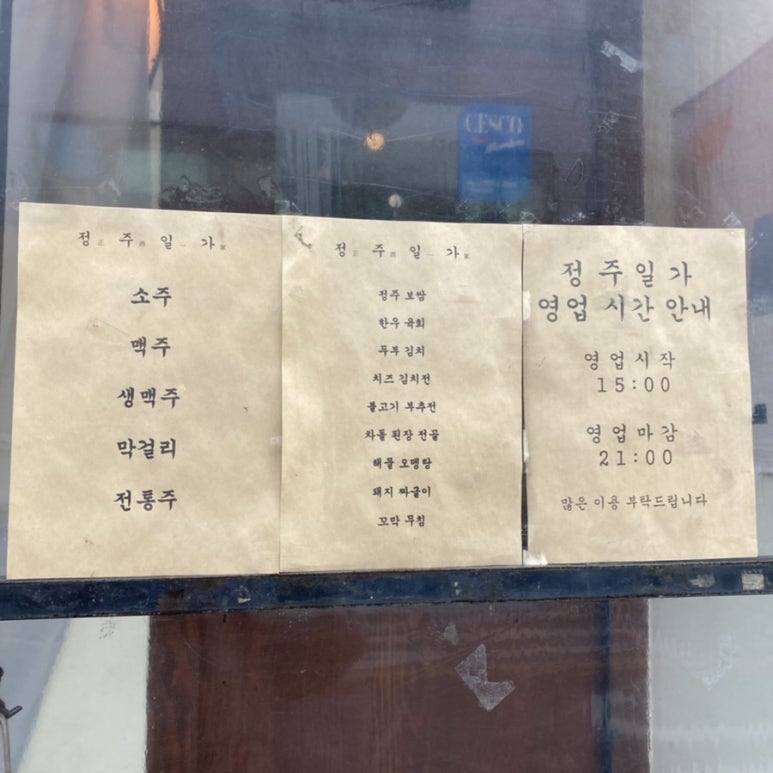 정正주酒일一가家
소주
맥주
생맥주
막걸리
전통주
정正주酒일一가家
정주 보쌈
한우 육회
두부 김치
치즈 김치전
불고기 부추전
차돌 된장 전골
해물 오뎅탕
돼지 짜글이
꼬막 무침
정주일가
영업 시간 안내
영업시작
15:00
영업마감
21:00
많은 이용 부탁드립니다
CESCO